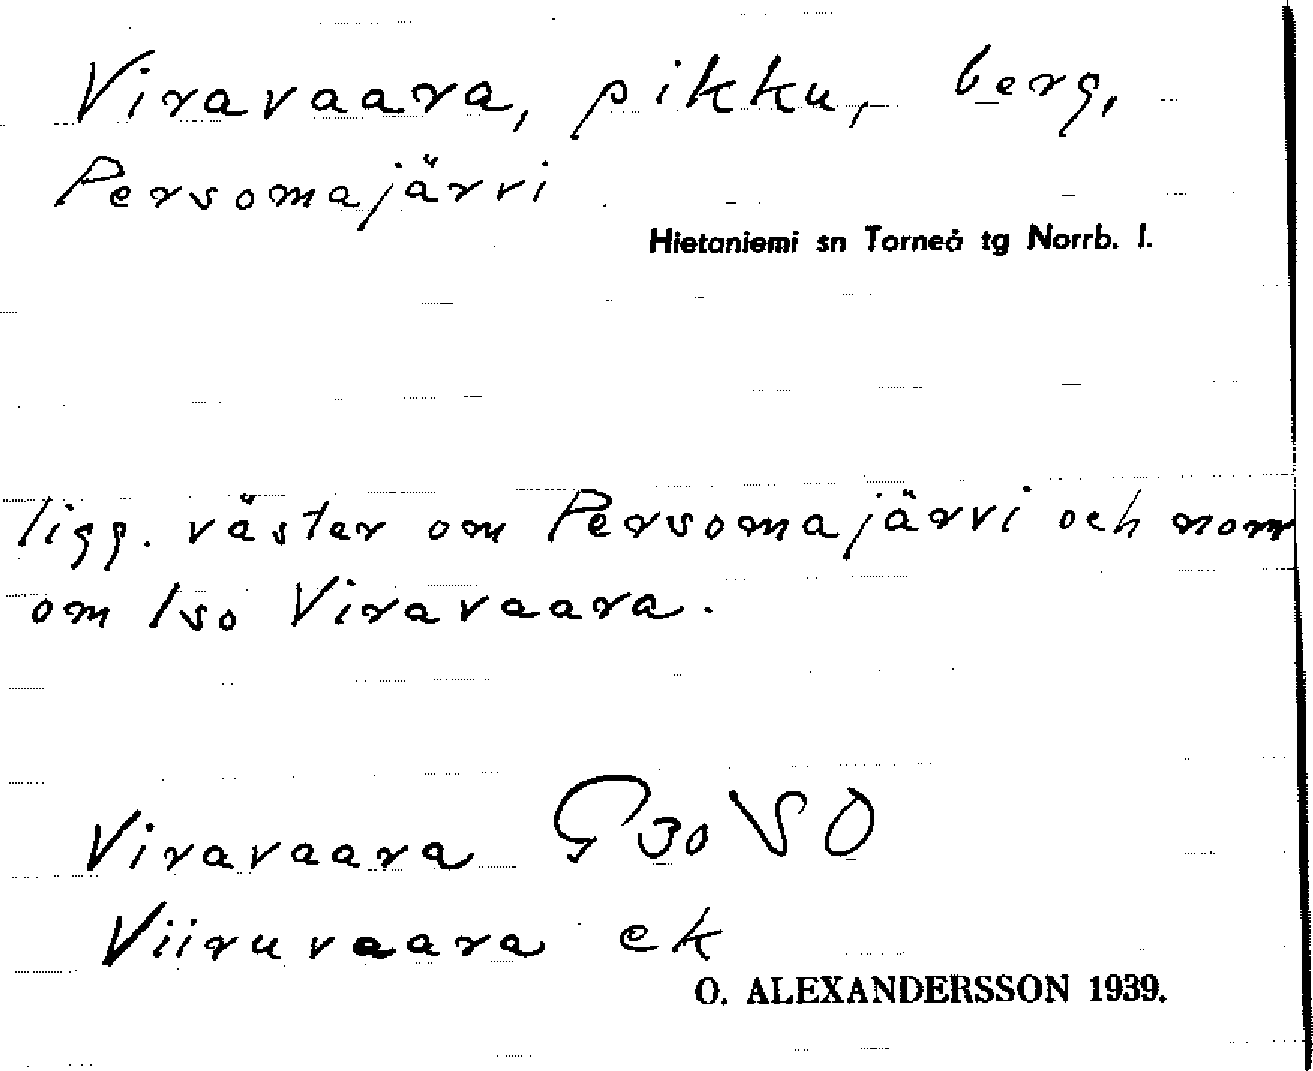 Viravaara, pikku, berg,
Persomajärvi
Hietaniemi sn Torneå tg Norrb. l.
ligg. väster om Persomajärvi och norr
om Iso Viravaara.
Viravaara G 30 V S O
Viiruvaara ek
O. ALEXANDERSSON 1939.